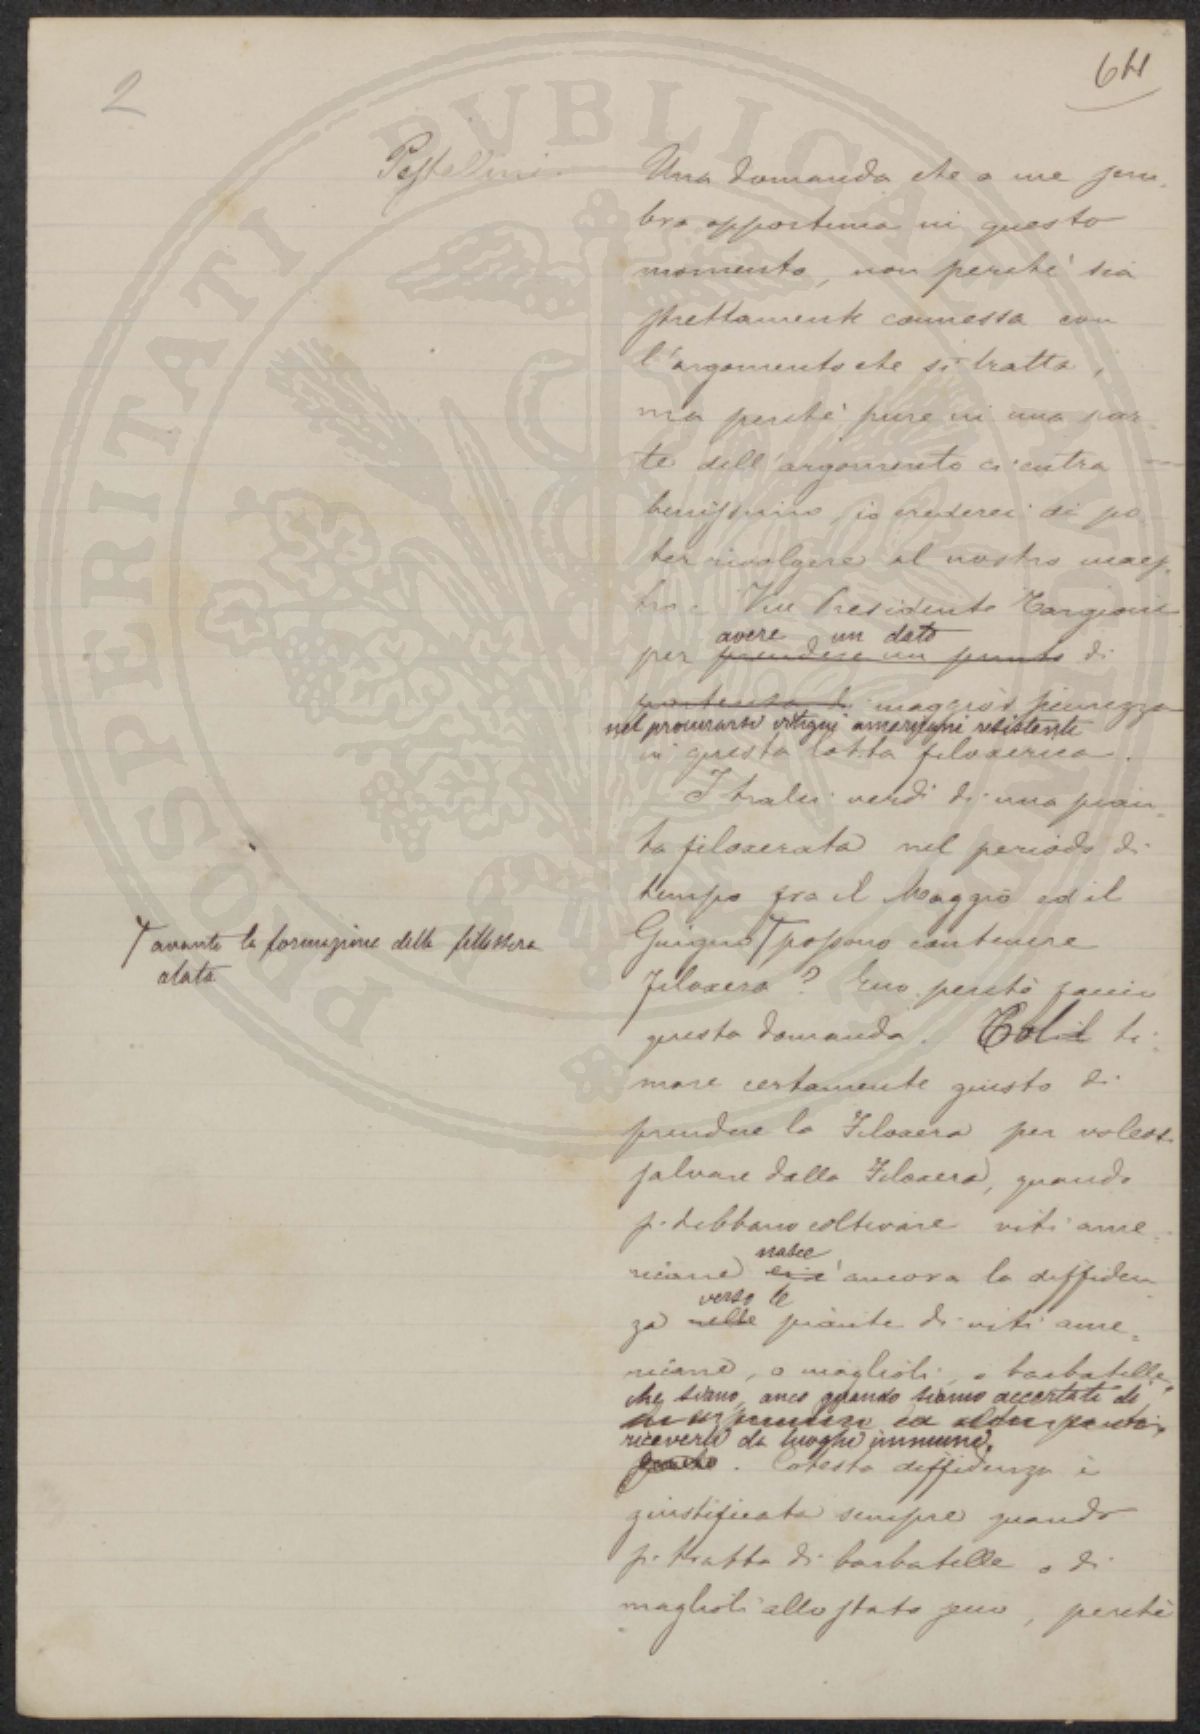 2
64
Pestellini.
Una domanda che a me sem-
bra opportuna in questo
momento, non perchè sia
strettamente connessa con
l'argomento che si tratta,
ma perchè pure in una par-
te dell'argomento ci entra
benissimo, io crederei di po
ter rivolgere al nostro maes-
tro Vice Presidente Targioni
avere un dato
per prendere un punto di
maggior sicurezza
nel procurarsi vitigni americani resistenti
in questa lotta filoxerica.
I tralci verdi di una pian-
ta filoxerata nel periodo di
tempo fra il Maggio ed il
Giugno possono contenere
avanti la formazione della fillossera
alata
filoxera? Ecco perchè faccio
questa domanda. Col ti-
more certamente giusto di
prendere la Filoxera per volersi
salvare dalla Filoxera, quando
si debbano coltivare viti ame-
nasce
ricane ancora la diffiden
verso le
za nelle piante di viti ame-
ricane, o maglioli, o barbatelle,
che siano, anco quando siamo accertati di
riceverle da luoghi immuni.
Cotesta diffidenza è
giustificata sempre quando
si tratta di barbatelle o di
maglioli allo stato secco, perchè